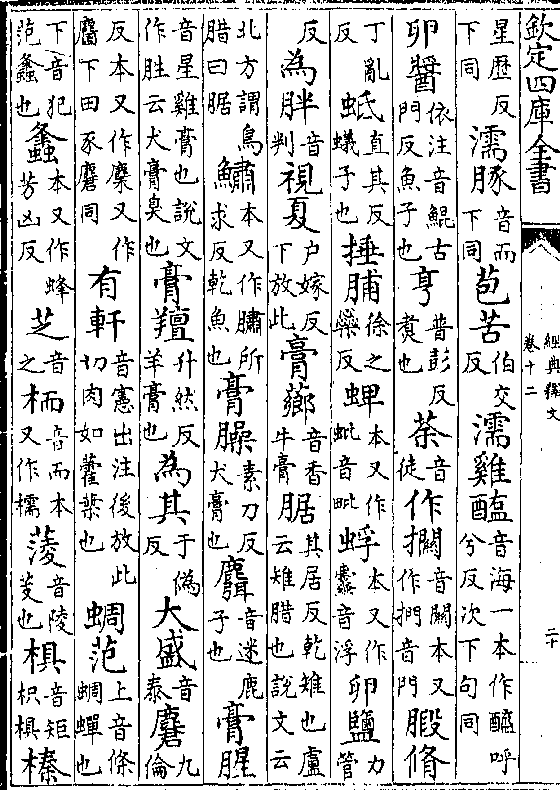 欽定四庫全書
經典釋文
卷十二
二十
星歷反下同濡豚音而下同苞苦伯交反濡雞醢音海一本作醯呼兮反次下句同
卵醬依注音鯤古門反魚子也亨普彭反煑也荼音徒作音關本又作捫音門腶脩
丁亂反蚳直其反蟻子也捶脯徐之蘂反蜱本又作蚍音毗蜉本又作音浮卵鹽力管
反為胖音判視夏户嫁反下放此膏薌音香牛膏腒其居反乾雉也盧云雉腊也說文云
北方謂鳥腊曰腒鱐本又作䐹所求反乾魚也膏臊素刀反犬膏也麛音迷鹿子也膏腥
音星雞膏也說文作胜云犬膏臭也膏羶升然反羊膏也為其于偽反大盛音泰麕九倫
反本又作麇又作麏下田豕麕同有軒音憲出注後放此切肉如藿葉也蜩范上音條蜩蟬也
下音犯范蠭也蠭本又作蜂芳凶反芝音之栭音而本又作檽蔆音陵芰也椇音矩枳椇榛